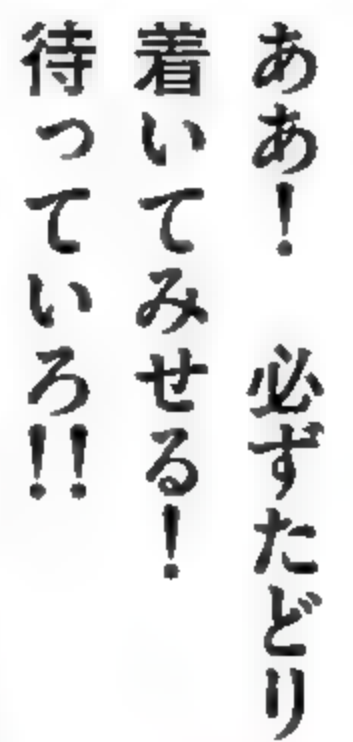 ああ！　必ずたどり
着いてみせる！
待っていろ!!